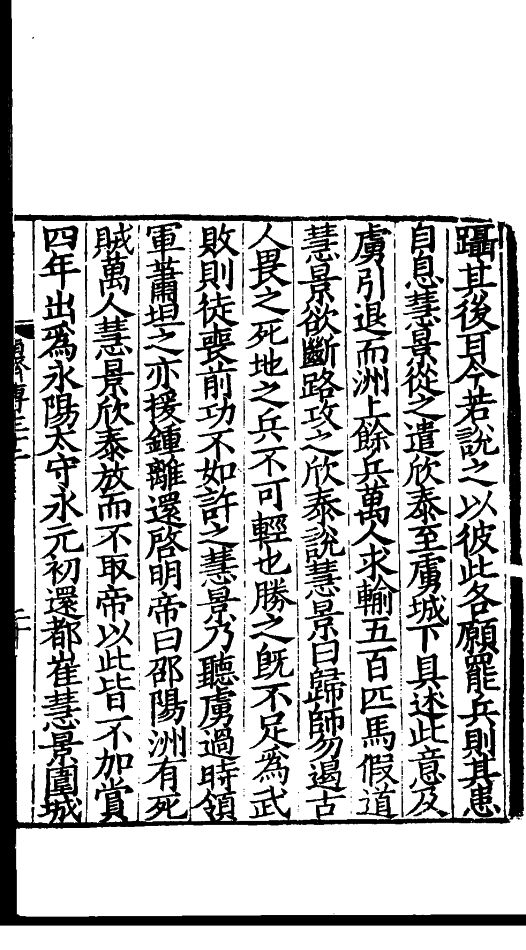 躡其後耳今若說之以彼此各願罷兵則其患
自息慧景從之遣欣泰至虜城下具述此意及
虜引退而洲上餘兵萬人求輸五百匹馬假道
慧景欲斷路攻之欣泰說慧景曰歸師勿遏古
人畏之死地之兵不可輕也勝之旣不足為武
敗則徒喪前功不如許之慧景乃聽虜過時領
軍蕭坦之亦援鍾離還啓明帝曰邵陽洲有死
賊萬人慧景欣泰放而不取帝以此皆不加賞
四年出為永陽太守永元初還都崔慧景圍城